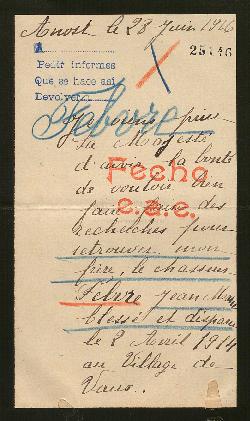 Anost le 28 Juin 1916
25146
A
Pedir informes
Que se hace así
Devolverla
Febvre
Sa Majesté
d'avoir la bonté
de vouloir bien
Fecha
faire des
e.a.c.
recherches pour
retrouver mon
frère, le chasseur
Febvre Jean
blessé et disparu
le 2 Avril 1914
au Village de
Vaux.